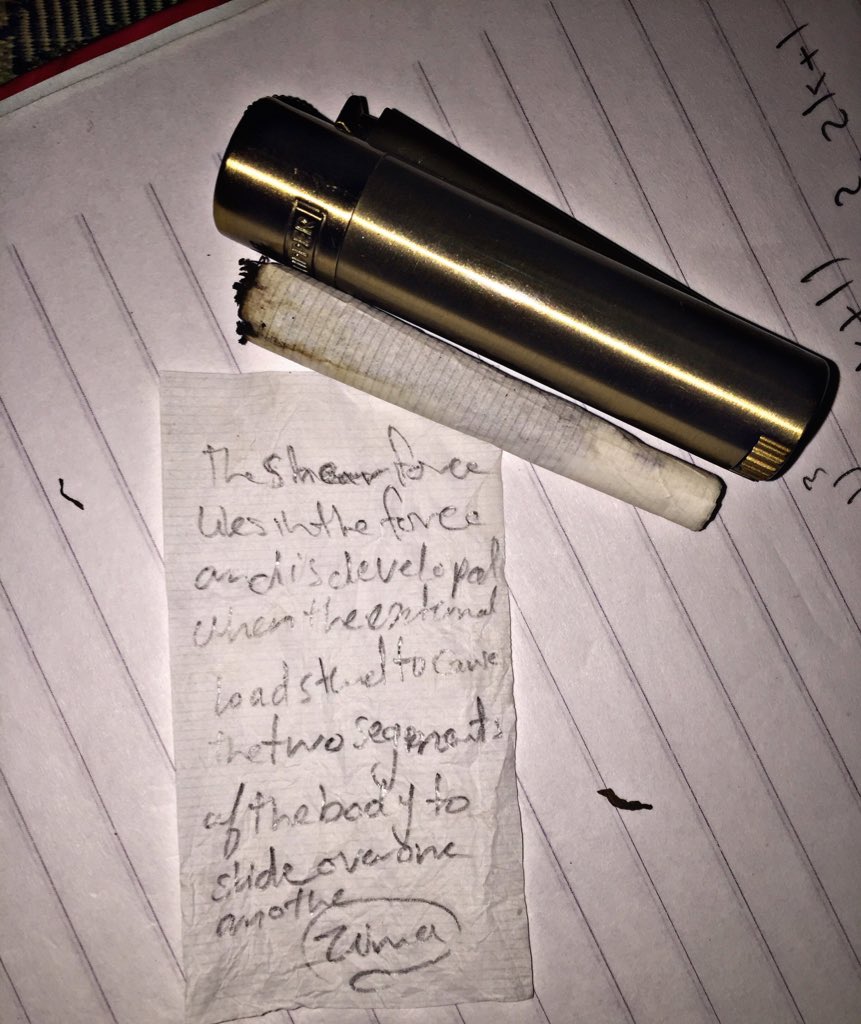 The shear force
lies in the force
and is developed
when the external
loads tend to cause
the two segments
of the body to
slide over one
anothe
CLIPPER
2k+1